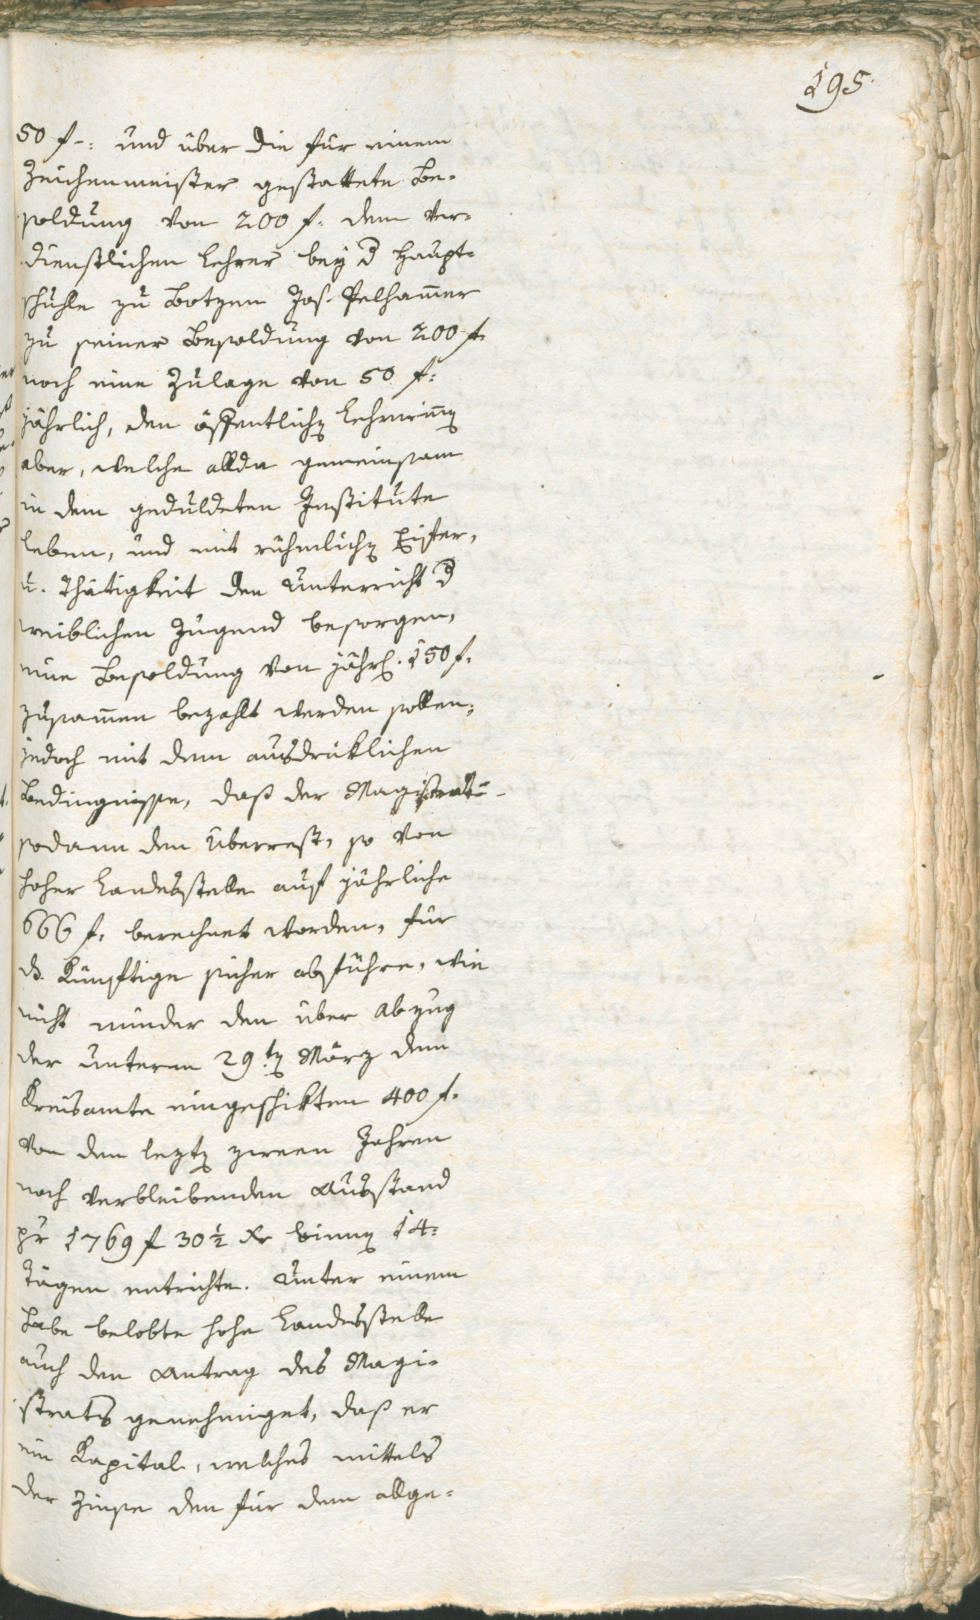 195.
50 f-: und über die für einem
Zeichenmeister gestattete Be-
soldung von 200 f. dem ver-
dienstlichen Lehrer bey d Haupt-
schule zu Botzen Jos. Pelhamer
zu seiner Besoldung von 200 f.
noch eine Zulage von 50 f:
jährlich, den öffentlichen Lehrerinen
aber, welche allda gemeinsam
in dem geduldeten Institute
leben, und mit rühmlichen Eifer,
u. Thätigkeit den Unterricht d
weiblichen Jugend besorgen,
eine Besoldung von jährl. 150 f.
zusamen bezahlt werden sollen;
jedoch mit dem ausdruklichen
Bedingnisse, daß der Magistrat
sodann den Überrest, so von
hoher Landesstelle auf jährliche
666 f. berechnet worden, für
ds. Künftige sicher abführe, wie
nicht minder den über Abzug
der unterm 29.ten März dem
Kreisamte eingeschikten 400 f.
von den lezten zween Jahren
noch verbleibenden Ausstand
pr 1769 f 30½ Xr binnen 14-
Tägen entrichte. Unter einem
habe belobte hohe Landesstelle
auch den Antrag des Magi-
strats genehmiget, daß er
ein Kapital, welches mittels
der Zinse den für dem abge-